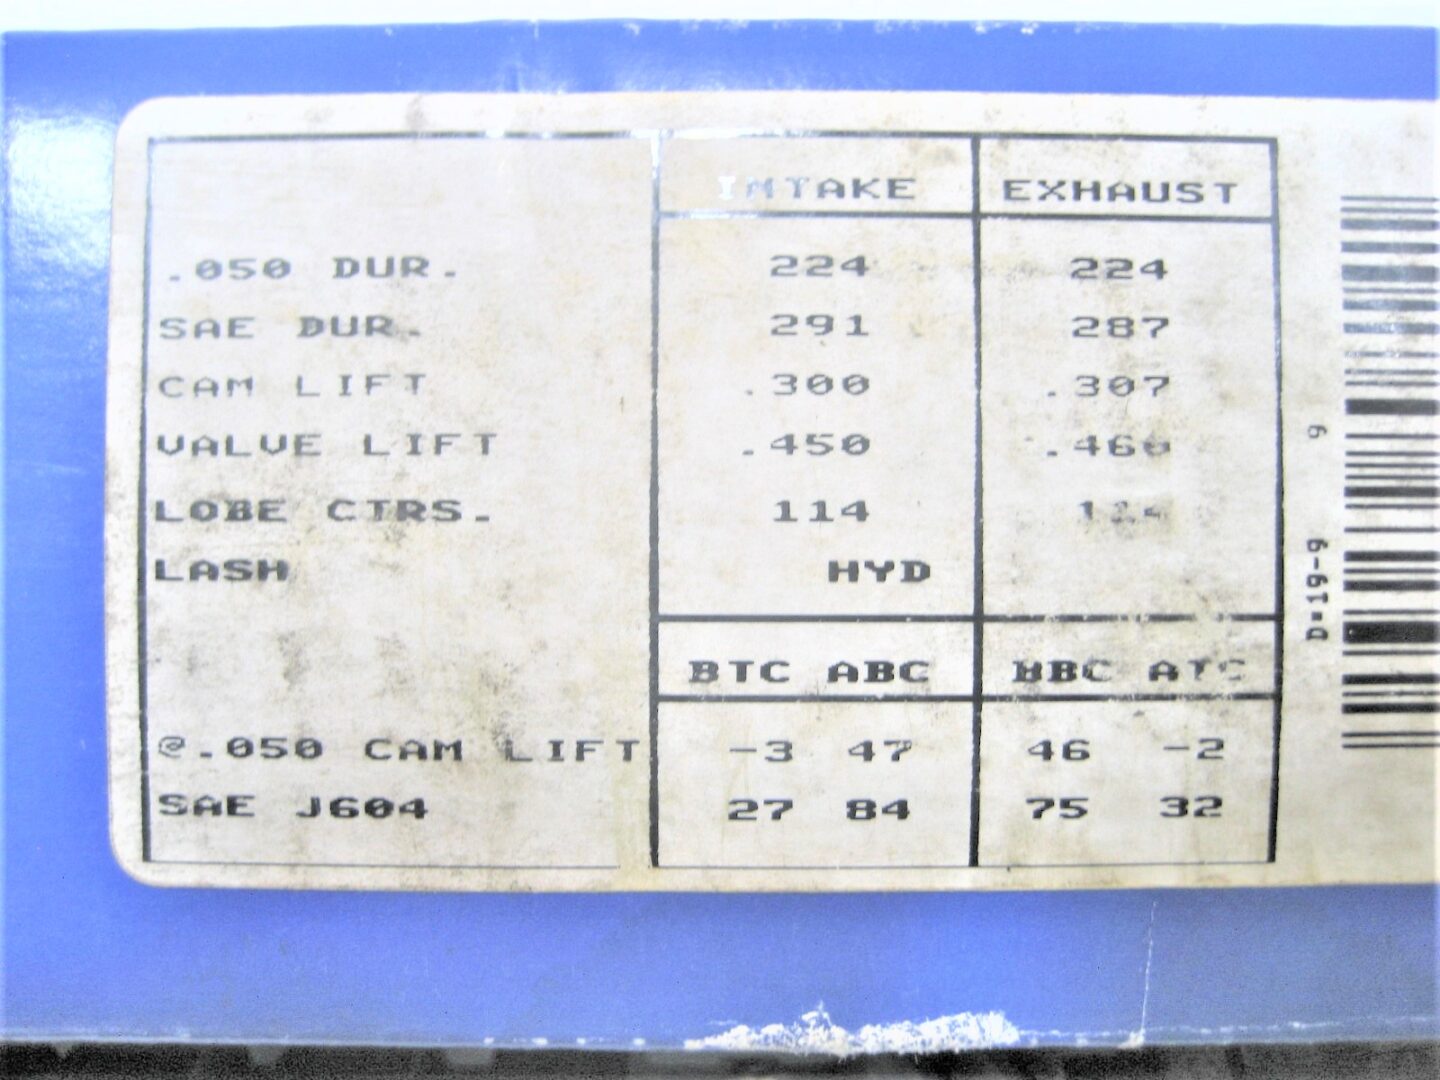 INTAKE EXHAUST
.050 DUR. 224 224
SAE DUR. 291 287
CAM LIFT .300 .307
VALVE LIFT .450 .460
LOBE CTRS. 114
LASH HYD
BTC ABC BBC ATC
@.050 CAM LIFT -3 47 46 -2
SAE J604 27 84 75 32
9
D-19-9